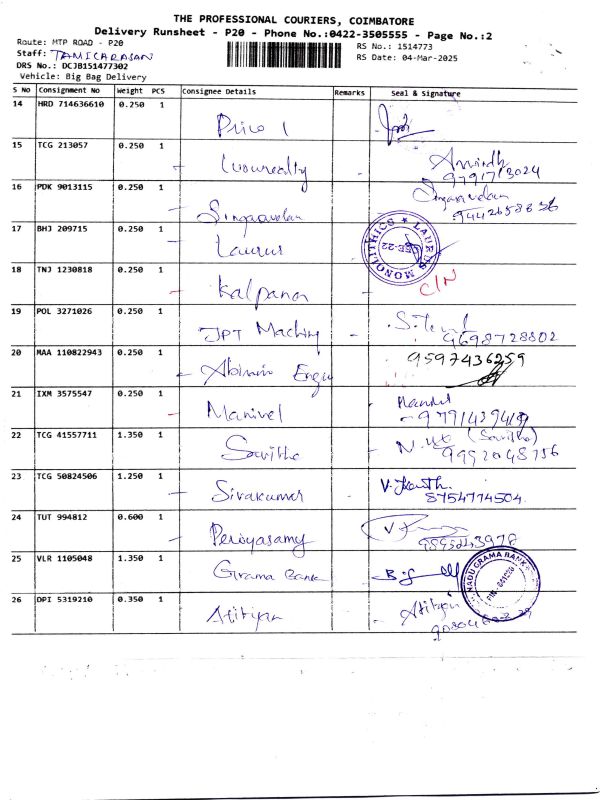 THE PROFESSIONAL COURIERS, COIMBATORE
Delivery Runsheet - P20 - Phone No.:0422-3505555 - Page No.:2
Route: MTP ROAD - P20 RS No.: 1514773
Staff: TAMILARASAN RS Date: 04-Mar-2025
DRS No.: DCJB151477302
Vehicle: Big Bag Delivery
S No Consignment No Weight PCS Consignee Details Remarks Seal & Signature
14 HRD 714636610 0.250 1
Prico 1
15 TCG 213057 0.250 1
9791713024
16 PDK 9013115 0.250 1
Singaravelan
17 BHJ 209715 0.250 1
Laurus
LAURUS MONOLITHICS
18 TNJ 1230818 0.250 1
Kalpana C/N
19 POL 3271026 0.250 1
JPT Machiny 9698728802
20 MAA 110822943 0.250 1 9597436259
21 IXM 3575547 0.250 1
Manivel
22 TCG 41557711 1.350 1
Savitha (Savitha)
23 TCG 50824506 1.250 1
Sivakumar 8754774504
24 TUT 994812 0.600 1
Periyasamy
25 VLR 1105048 1.350 1
Grama Bank
NADU GRAMA BANK
26 DPI 5319210 0.350 1
Atityan Atityan